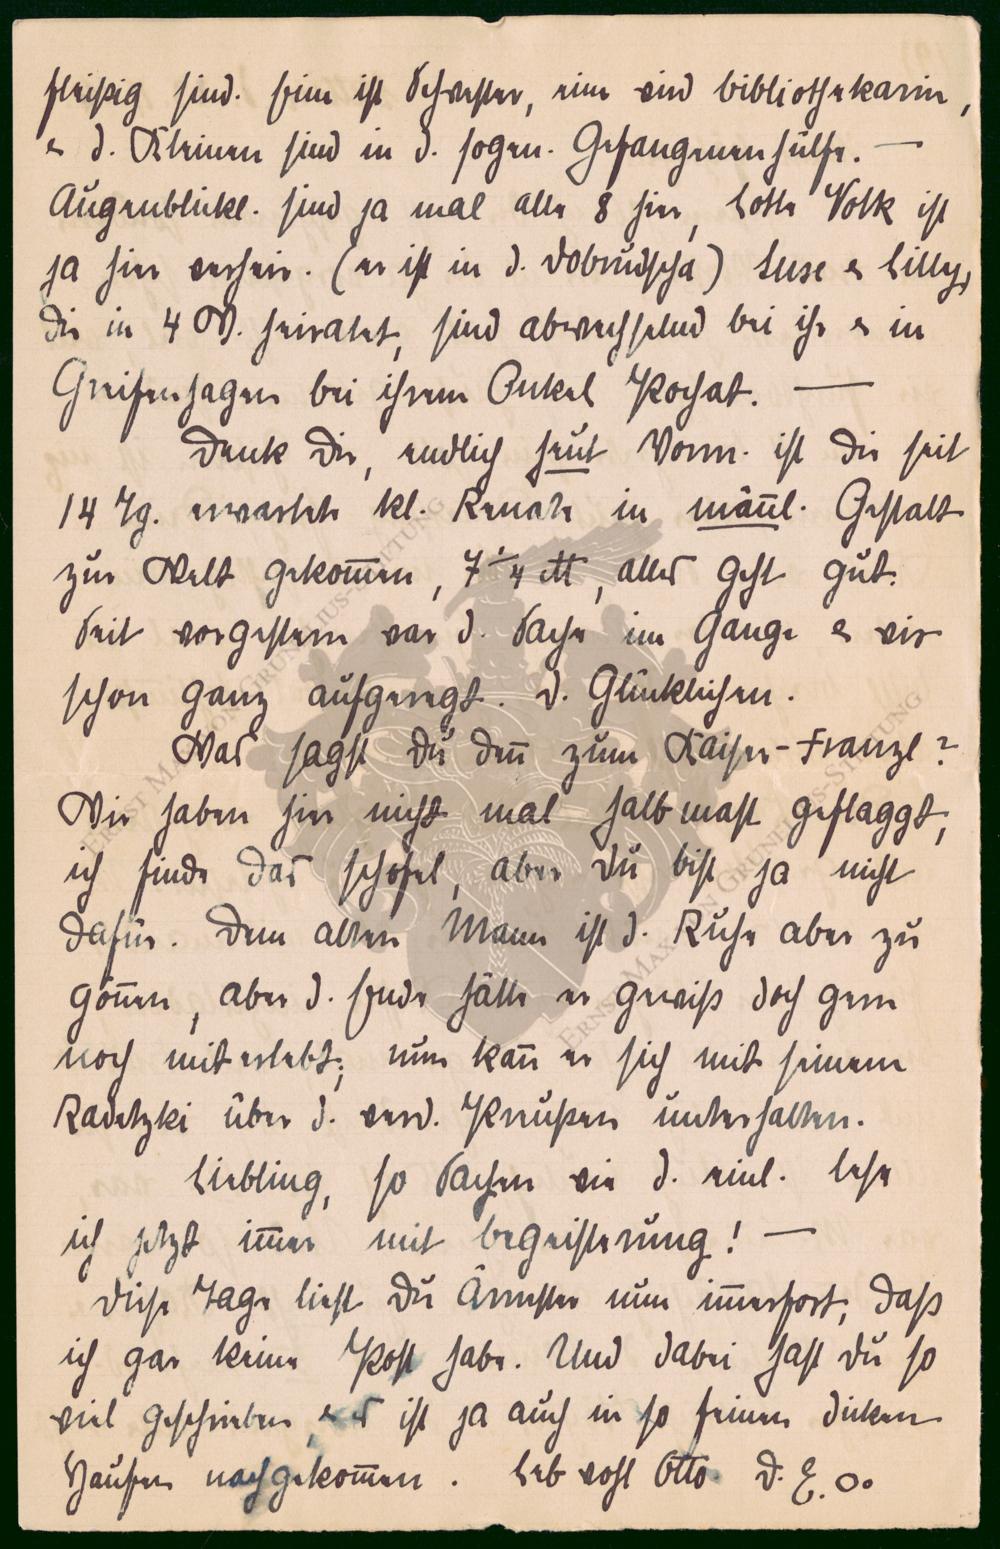 fleißig sind. Eine ist Schwester, eine wird Bibliothekarin,
& d. Kleinen sind in d. sogen. Gefangenenhülfe. —
Augenblickl. sind ja mal alle 8 hier, Lotte Volk ist
ja hier verheir. (er ist in d. Dobrudscha) Luse & Lilly,
die in 4 W. heiratet, sind abwechselnd bei ihr & in
Greifenhagen bei ihrem Onkel Kochat. —
Denk Dir, endlich heut Vorm. ist die seit
14 Tg. erwartete kl. Renate in männl. Gestalt
zur Welt gekommen, 7 1/4 ℔, alles geht gut.
Seit vorgestern war d. Sache im Gange & wir
schon ganz aufgeregt. D. Glücklichen.
Was sagst Du denn zum Kaiser-Franzl?
Wir haben hier nicht mal halbmast geflaggt,
ich finde das schofel, aber Du bist ja nicht
dafür. Dem alten Mann ist d. Ruhe aber zu
gönnen, aber d. Ende hätte er gewiß doch gern
noch miterlebt; nun kann er sich mit seinem
Radetzki über d. verd. Preußen unterhalten.
Liebling, so Sachen wie d. einl. lese
ich jetzt immer mit Begeisterung! —
Diese Tage liest Du Ärmster nun immerfort, daß
ich gar keine Post habe. Und dabei hast Du so
viel geschrieben, & es ist ja auch in so feinen dicken
Haufen nachgekommen. Leb wohl Otto D. E. O.
ERNST MAX VON GRUNELIUS-STIFTUNG
ERNST MAX VON GRUNELIUS-STIFTUNG